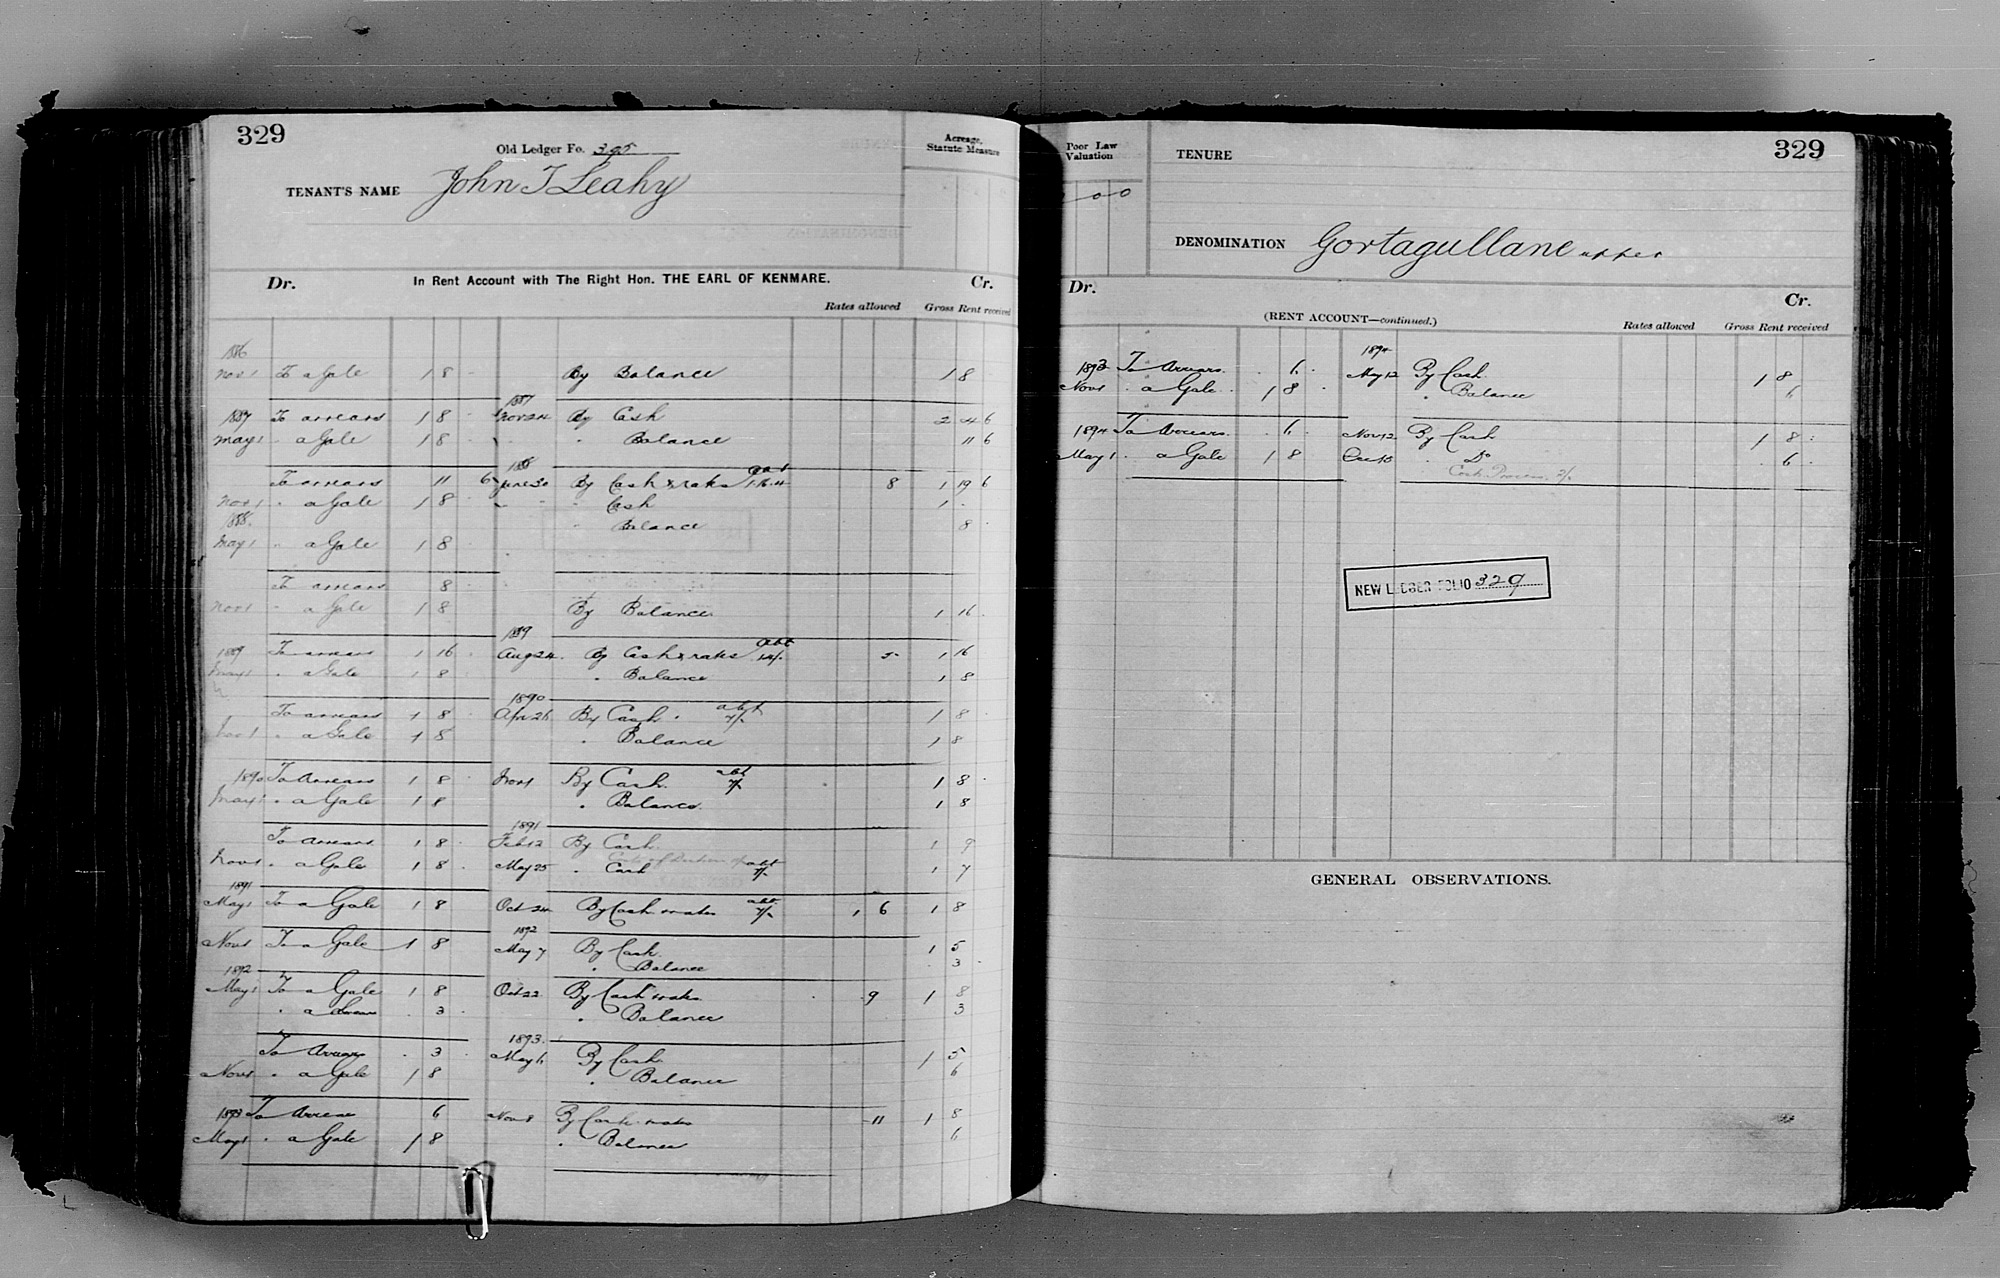 329
Old Ledger Fo. 395
Acreage, Statute Measure
TENANT'S NAME John T Leahy
Dr. In Rent Account with The Right Hon. THE EARL OF KENMARE. Cr.
Rates allowed Gross Rent received
1886
Nov 1 To a Gale 1 8 - By Balance 1 8
1887
1887 To arrears 1 8 - Nov 24 By Cash 2 4 6
May 1 " a Gale 1 8 " Balance 11 6
1888
To arrears 11 6 June 30 By Cash & rates 1.18.4 8 1 19 6
Nov 1 " a Gale 1 8 - " Cash 1 -
1888 " Balance 8 -
May 1 " a Gale 1 8 -
To arrears 8 -
Nov 1 " a Gale 1 8 By Balance 1 16 -
1889
1889 To arrears 1 16 - Aug 24 By Cash & rates abt 14/- 5 - 1 16
May 1 " a Gale 1 8 - " Balance 1 8
1890
To arrears 1 8 - Apr 26 By Cash abt 7/- 1 8
Nov 1 " a Gale 1 8 " Balance 1 8
1890 To Arrears 1 8 - Nov 1 By Cash abt 7/- 1 8 -
May 1 " a Gale 1 8 " Balance 1 8
1891
To Arrears 1 8 - Feb 12 By Cash 1 9
Nov 1 " a Gale 1 8 - May 25 " Cash abt 7/- 1 7
1891
May 1 To a Gale 1 8 Oct 24 By Cash & rates abt 7/- 1 6 1 8
1892
Nov 1 To a Gale 1 8 May 7 By Cash 1 5
" Balance 3 -
1892
May 1 To a Gale 1 8 Oct 22 By Cash & rates 9 1 8
" Arrears 3 - " Balance 3
1893
To Arrears 3 - May 6 By Cash 1 5
Nov 1 " a Gale 1 8 " Balance 6
1893 To Arrears 6 Nov 8 By Cash & rates 11 1 8
May 1 " a Gale 1 8 " Balance 6
Poor Law Valuation
TENURE
329
DENOMINATION Gortagullane upper
Dr. (RENT ACCOUNT—continued.) Cr.
Rates allowed Gross Rent received
1894
1893 To Arrears - 6 - May 12 By Cash 1 8
Nov 1 " a Gale 1 8 - " Balance 6
1894 To Arrears - 6 - Nov 12 By Cash 1 8 -
May 1 " a Gale 1 8 Dec 13 " Do 6 -
Cost Process 2/-
NEW LEDGER FOLIO 329
GENERAL OBSERVATIONS.